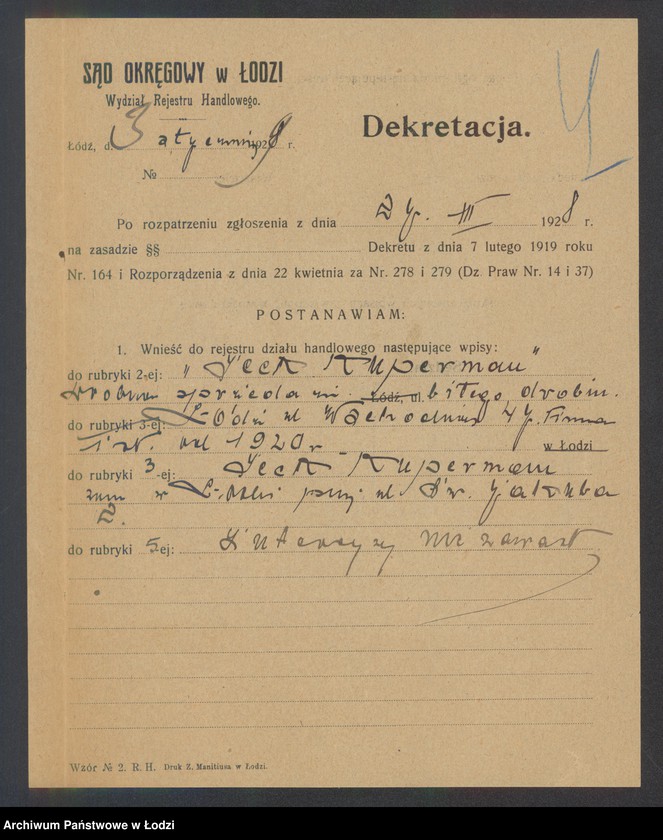 SĄD OKRĘGOWY w ŁODZI
Wydział Rejestru Handlowego.
Dekretacja.
Łódź, d. 3 stycznia 1929 r.
№
Po rozpatrzeniu zgłoszenia z dnia 27. III 1928 r.
na zasadzie §§ Dekretu z dnia 7 lutego 1919 roku
Nr. 164 i Rozporządzenia z dnia 22 kwietnia za Nr. 278 i 279 (Dz. Praw Nr. 14 i 37)
POSTANAWIAM:
1. Wnieść do rejestru działu handlowego następujące wpisy:
do rubryki 2-ej: „Icek Kuperman”
drobna sprzedaż Łódź, ul. bitego drobiu.
do rubryki 3-ej: Łódź ul Wschodnia 47. Firma
ist. od 1920 r w Łodzi
do rubryki 3-ej: Icek Kuperman
zam w Łodzi przy ul Św. Jakuba
2.
do rubryki 5-ej: Intercyzy nie zawarł
Wzór № 2. R. H. Druk Z. Manitiusa w Łodzi.
Archiwum Państwowe w Łodzi